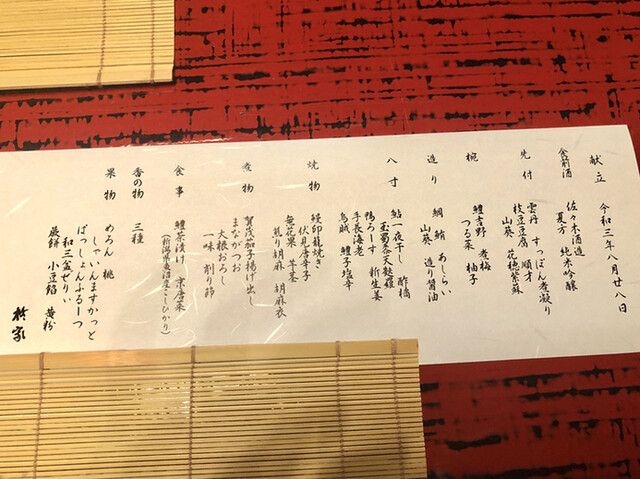 献立　令和三年八月廿八日
食前酒　佐々木酒造　純米吟醸
夏方
先付　雲丹　すっぽん煮凝り
枝豆豆腐　順才
山葵　花穂紫蘇
椀　鱧吉野　煮梅
つる菜　柚子
造り　鯛　鮪　あしらい
山葵　造り醤油
八寸　鮎一夜干し　酢橘
玉蜀黍天麩羅
鴨ろーす　新生姜
手長海老
烏賊　鱧子塩辛
焼物　鰻印籠焼き
伏見唐辛子
無花果　芋茎
煎り胡麻　胡麻衣
煮物　賀茂茄子揚げ出し
まながつお
大根おろし
一味　削り節
食事　鱧茶漬け　京唐菜
(新潟県魚沼産こしひかり)
香の物　三種
果物　めろん　桃
しゃいんますかっと
ぱっしょんふるーつ
和三盆ぜりい
蕨餅　小豆餡　黄粉